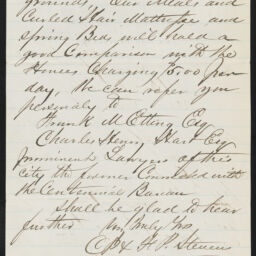 grounds, Our Meals and
Curled Hair Mattresse and
Spring Bed will hold a
good Comparison with the
Houses Charging 5.00 per
day, We can refer you
personally to
Frank M Etting Esq
Charles Henry Hart Esq
prominent Lawyers of this
city the former Connected with
the Centennial Bureau
Shall be glad to hear
further Yrs Truly
& H. P. Stevens